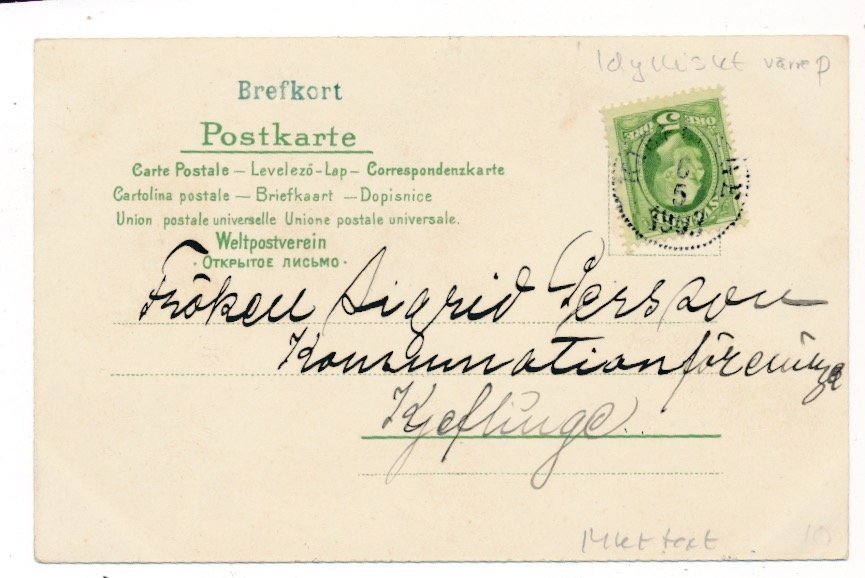 Idylliskt
Brefkort
Postkarte
Carte Postale — Levelező-Lap — Correspondenzkarte
Cartolina postale — Briefkaart — Dopisnice
Union postale universelle Unione postale universale.
Weltpostverein
· Открытое письмо ·
5
ÖRE
6
5
Fröken Sigrid Persson
Konsumnationförening
Kjeflinge
Mkt text
10